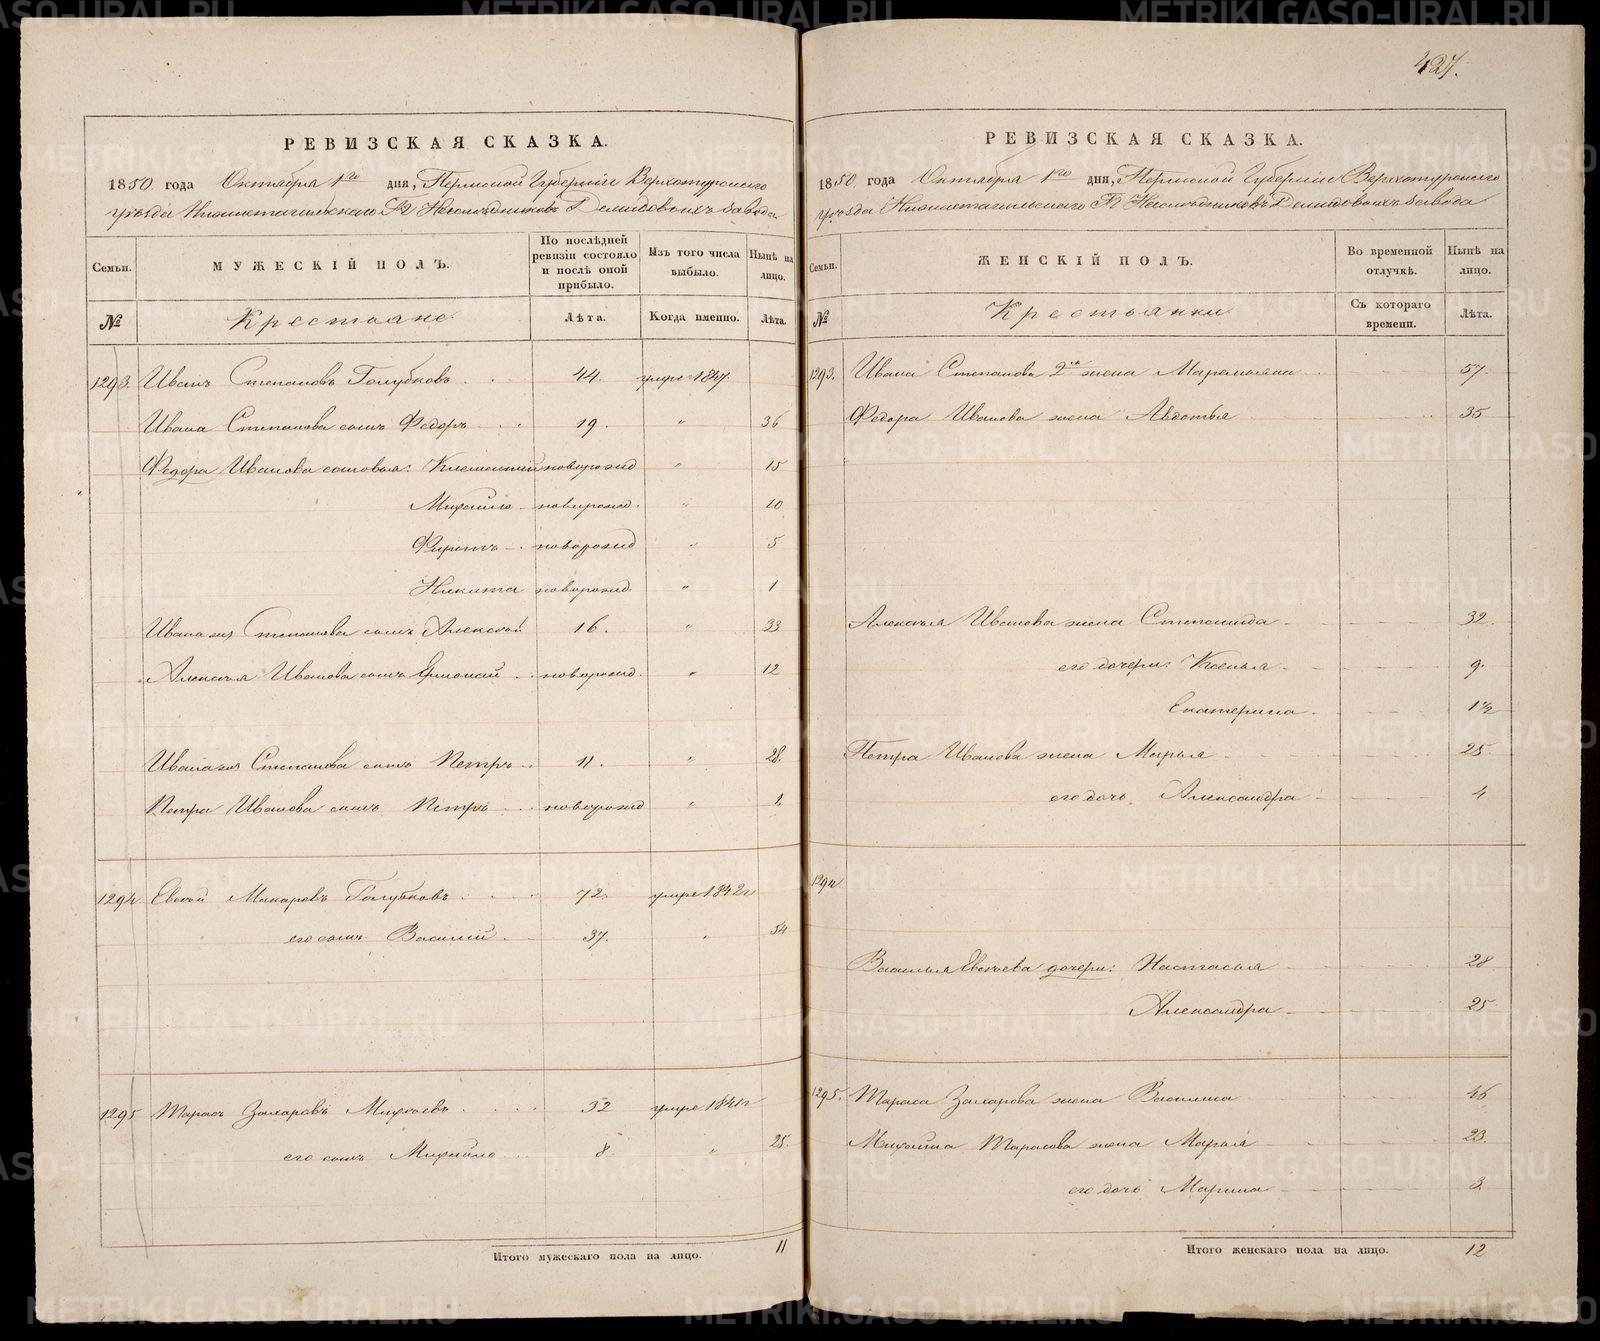 427.
РЕВИЗСКАЯ СКАЗКА.
1850 года Октября 1го дня, Пермской Губерніи Верхотурскаго
уѣзда Нижнетагильскаго Наслѣдниковъ Демидовыхъ завода
Семьи. МУЖЕСКІЙ ПОЛЪ. По послѣдней ревизіи состояло и послѣ оной прибыло. Изъ того числа выбыло. Нынѣ на лицо.
№ Крестьяне. Лѣта. Когда именно. Лѣта.
1293. Иванъ Степановъ Голубковъ 44. умре 1847.
Ивана Степанова сынъ Федоръ 19. " 36
Федора Иванова сыновья: Климентій новорожд " 15
Михайло новорожд. " 10
новорожд " 5
Никита новорожд. " 1
Ивана Степанова сынъ Алексѣй 16. " 33
Алексѣя Иванова сынъ новорожд. " 12
Ивана Степанова сынъ Петръ 11. " 28.
Петра Иванова сынъ Петръ новорожд " 1.
1294 Евсѣй Макаровъ Голубковъ 72. умре 1842г
его сынъ Василій 37. " 54
1295 Тарасъ Захаровъ 32 умре 1841г
его сынъ Михайло 8 " 25.
Итого мужескаго пола на лицо. 11
РЕВИЗСКАЯ СКАЗКА.
1850 года Октября 1го дня, Пермской Губерніи Верхотурскаго
уѣзда Нижнетагильскаго Наслѣдниковъ Демидовыхъ завода
Семьи. ЖЕНСКІЙ ПОЛЪ. Во временной отлучкѣ. Нынѣ на лицо.
№ Крестьянки Съ котораго времени. Лѣта.
1293. Ивана Степанова 2я жена Маремьяна 57.
Федора Иванова жена Авдотья 35
Алексѣя Иванова жена Степанида 32.
его дочери: Ксенья 9.
Екатерина 1 1/2
Петра Иванова жена Марья 25
его дочь Александра 4
1294.
Василья Евсѣева дочери: Настасья 28
Александра 25
1295. Тараса Захарова жена Василиса 46
Михайла Тарасова жена Марья 23.
его дочь Марина 3.
Итого женскаго пола на лицо. 12
METRIKI.GASO-URAL.RU